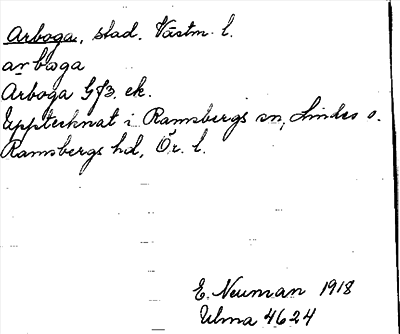 Arboga, stad. Västm. l.
arboga
Arboga Gfb. ek.
Upptecknat i Ramsbergs sn, Lindes o.
Ramsbergs hd, Ör. l.
E. Neuman 1918
Ulma 4624